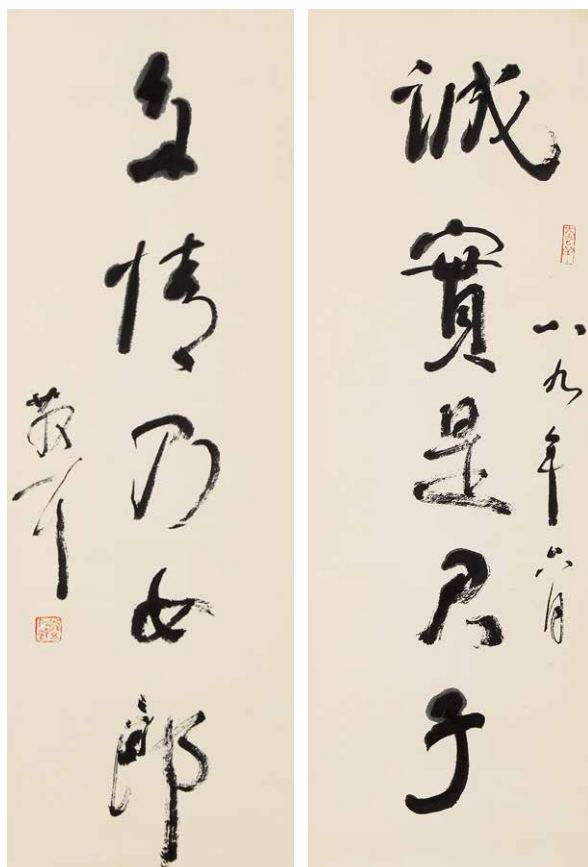 誠實是君子
八九年六月
多情乃女郎